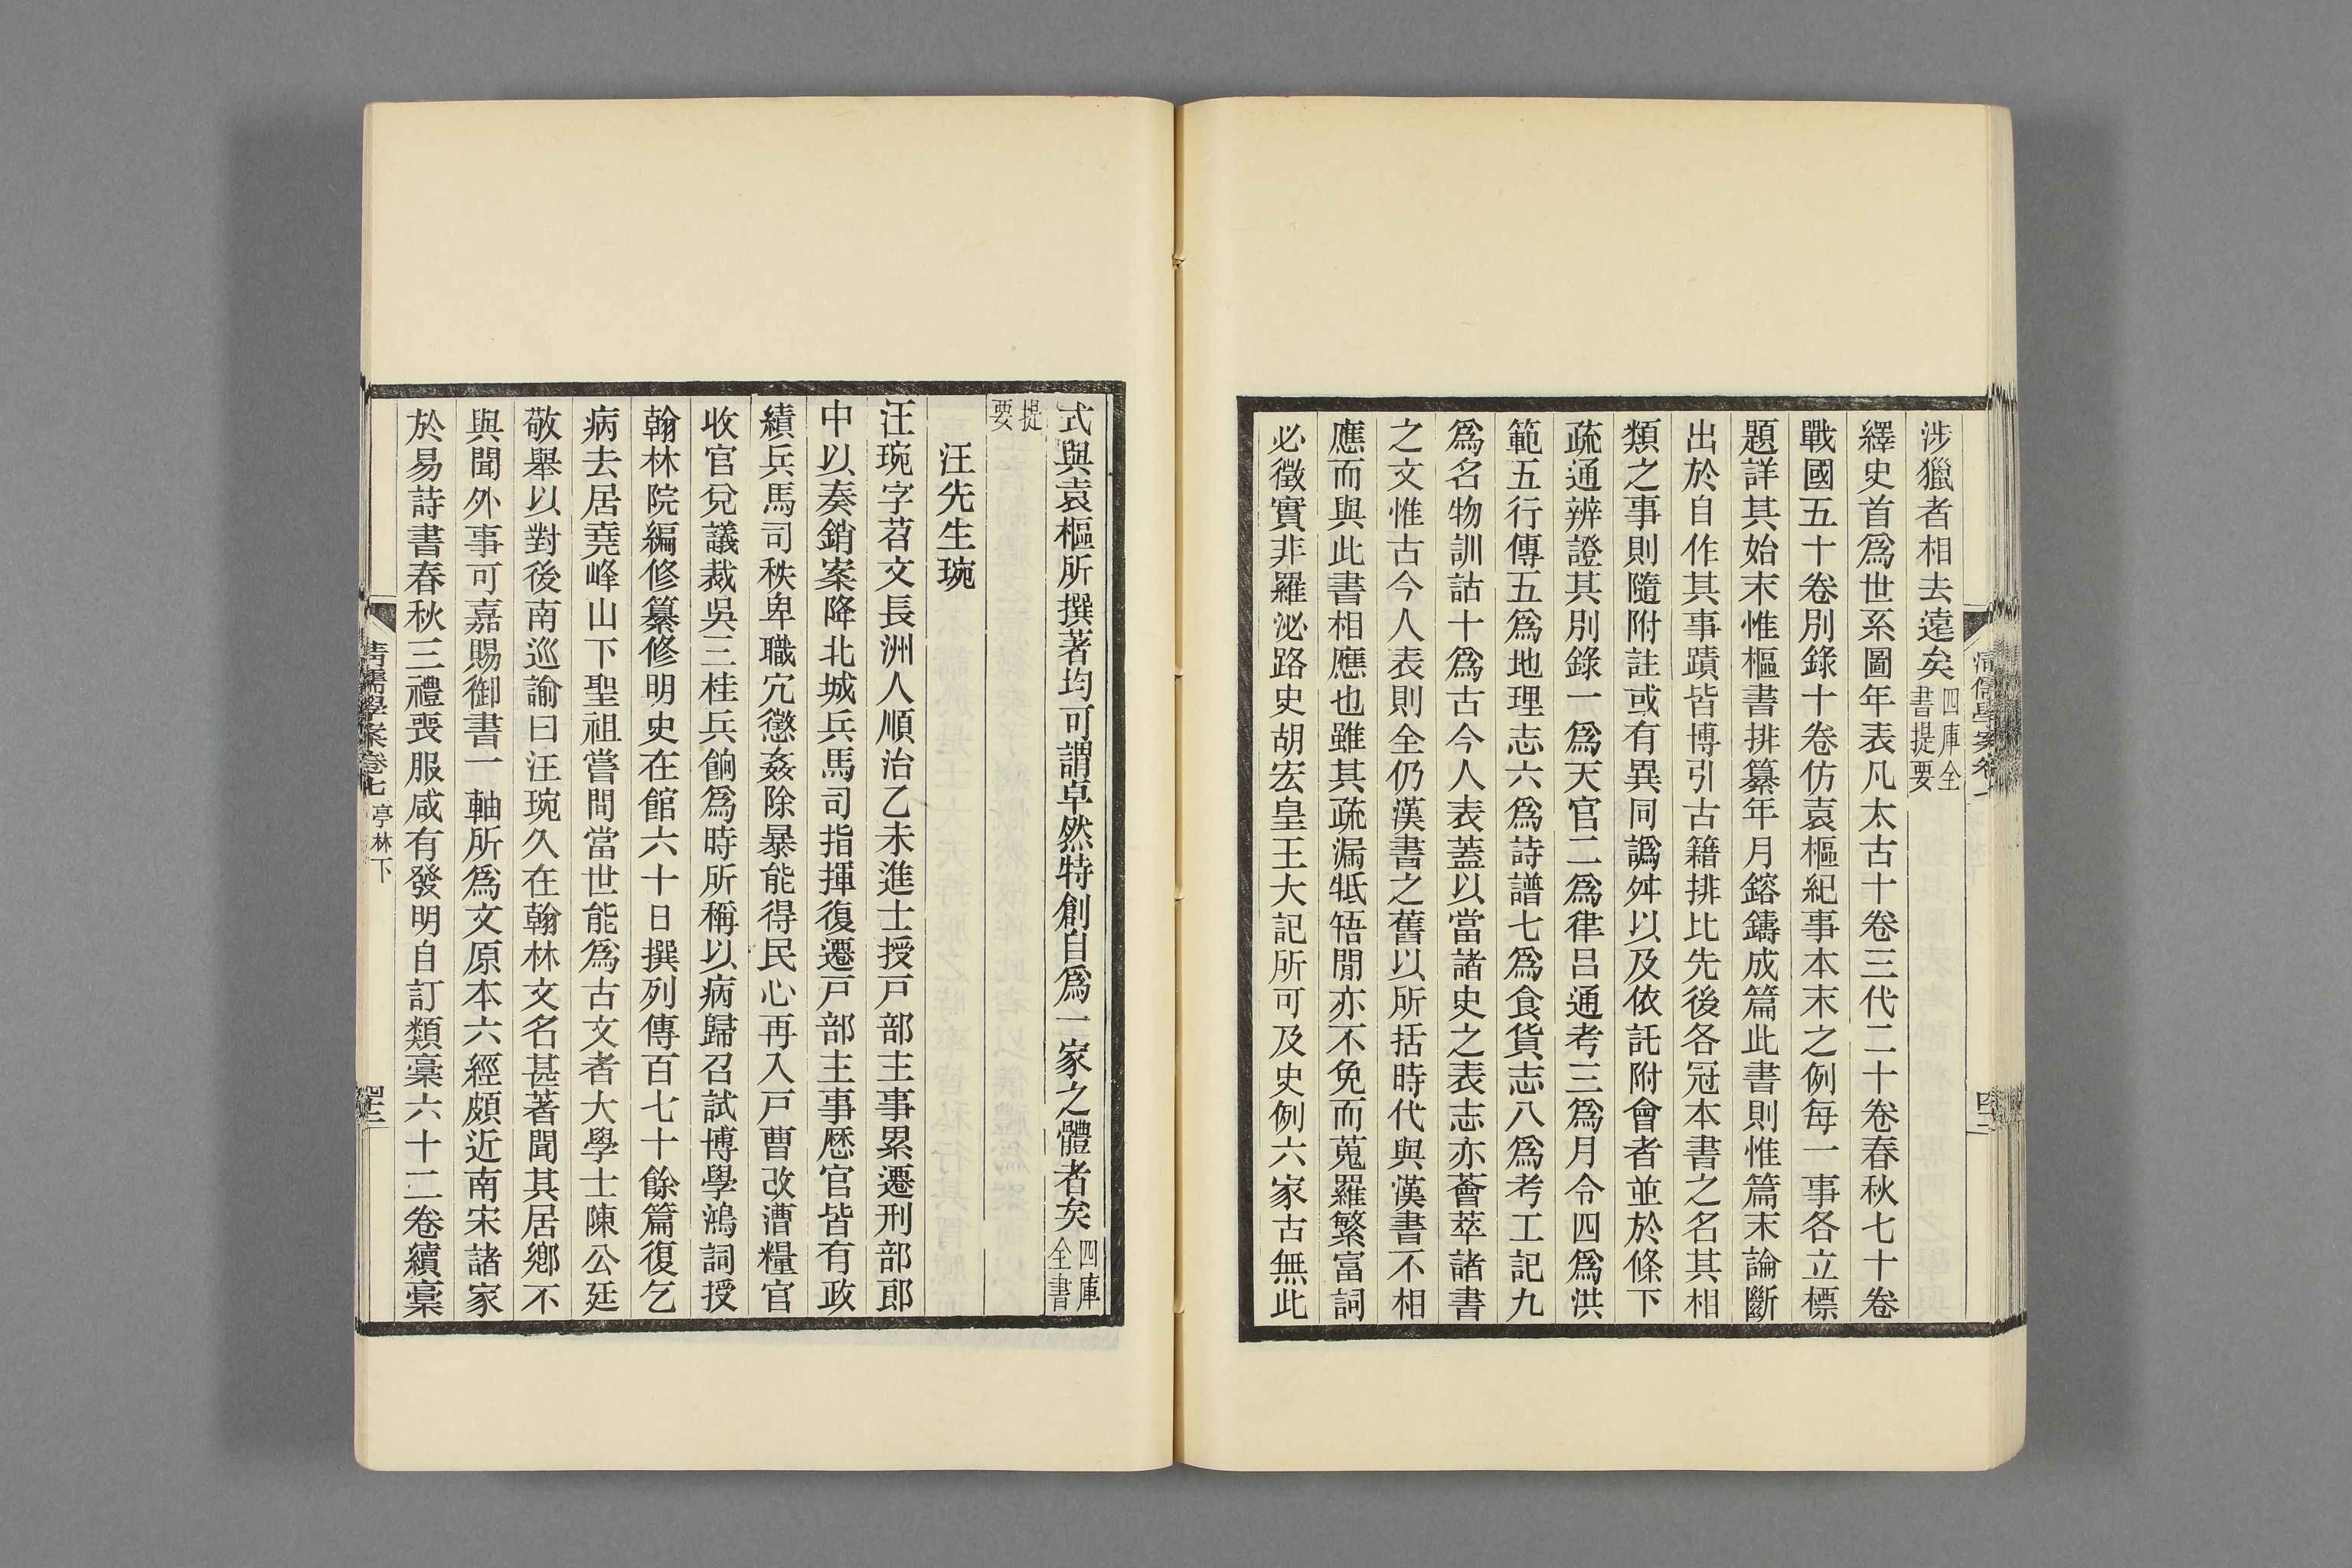 涉獵者相去遠矣四庫全書提要
繹史首爲世系圖年表凡太古十卷三代二十卷春秋七十卷
戰國五十卷別錄十卷仿袁樞紀事本末之例每一事各立標
題詳其始末惟樞書排纂年月鎔鑄成篇此書則惟篇末論斷
出於自作其事蹟皆博引古籍排比先後各冠本書之名其相
類之事則隨附註或有異同譌舛以及依託附會者並於條下
疏通辨證其別錄一爲天官二爲律呂通考三爲月令四爲洪
範五行傳五爲地理志六爲詩譜七爲食貨志八爲考工記九
爲名物訓詁十爲古今人表蓋以當諸史之表志亦薈萃諸書
之文惟古今人表則全仍漢書之舊以所括時代與漢書不相
應而與此書相應也雖其疏漏牴牾閒亦不免而蒐羅繁富詞
必徵實非羅泌路史胡宏皇王大記所可及史例六家古無此
式與袁樞所撰著均可謂卓然特創自爲一家之體者矣四庫全書
提要
汪先生琬
汪琬字苕文長洲人順治乙未進士授戸部主事累遷刑部郎
中以奏銷案降北城兵馬司指揮復遷戸部主事歷官皆有政
績兵馬司秩卑職宂懲姦除暴能得民心再入戸曹改漕糧官
收官兌議裁吳三桂兵餉爲時所稱以病歸召試博學鴻詞授
翰林院編修纂修明史在館六十日撰列傳百七十餘篇復乞
病去居堯峰山下聖祖嘗問當世能爲古文者大學士陳公廷
敬舉以對後南巡諭曰汪琬久在翰林文名甚著聞其居鄉不
與聞外事可嘉賜御書一軸所爲文原本六經頗近南宋諸家
於易詩書春秋三禮喪服咸有發明自訂類稾六十二卷續稾
清儒學案卷七 亭林下